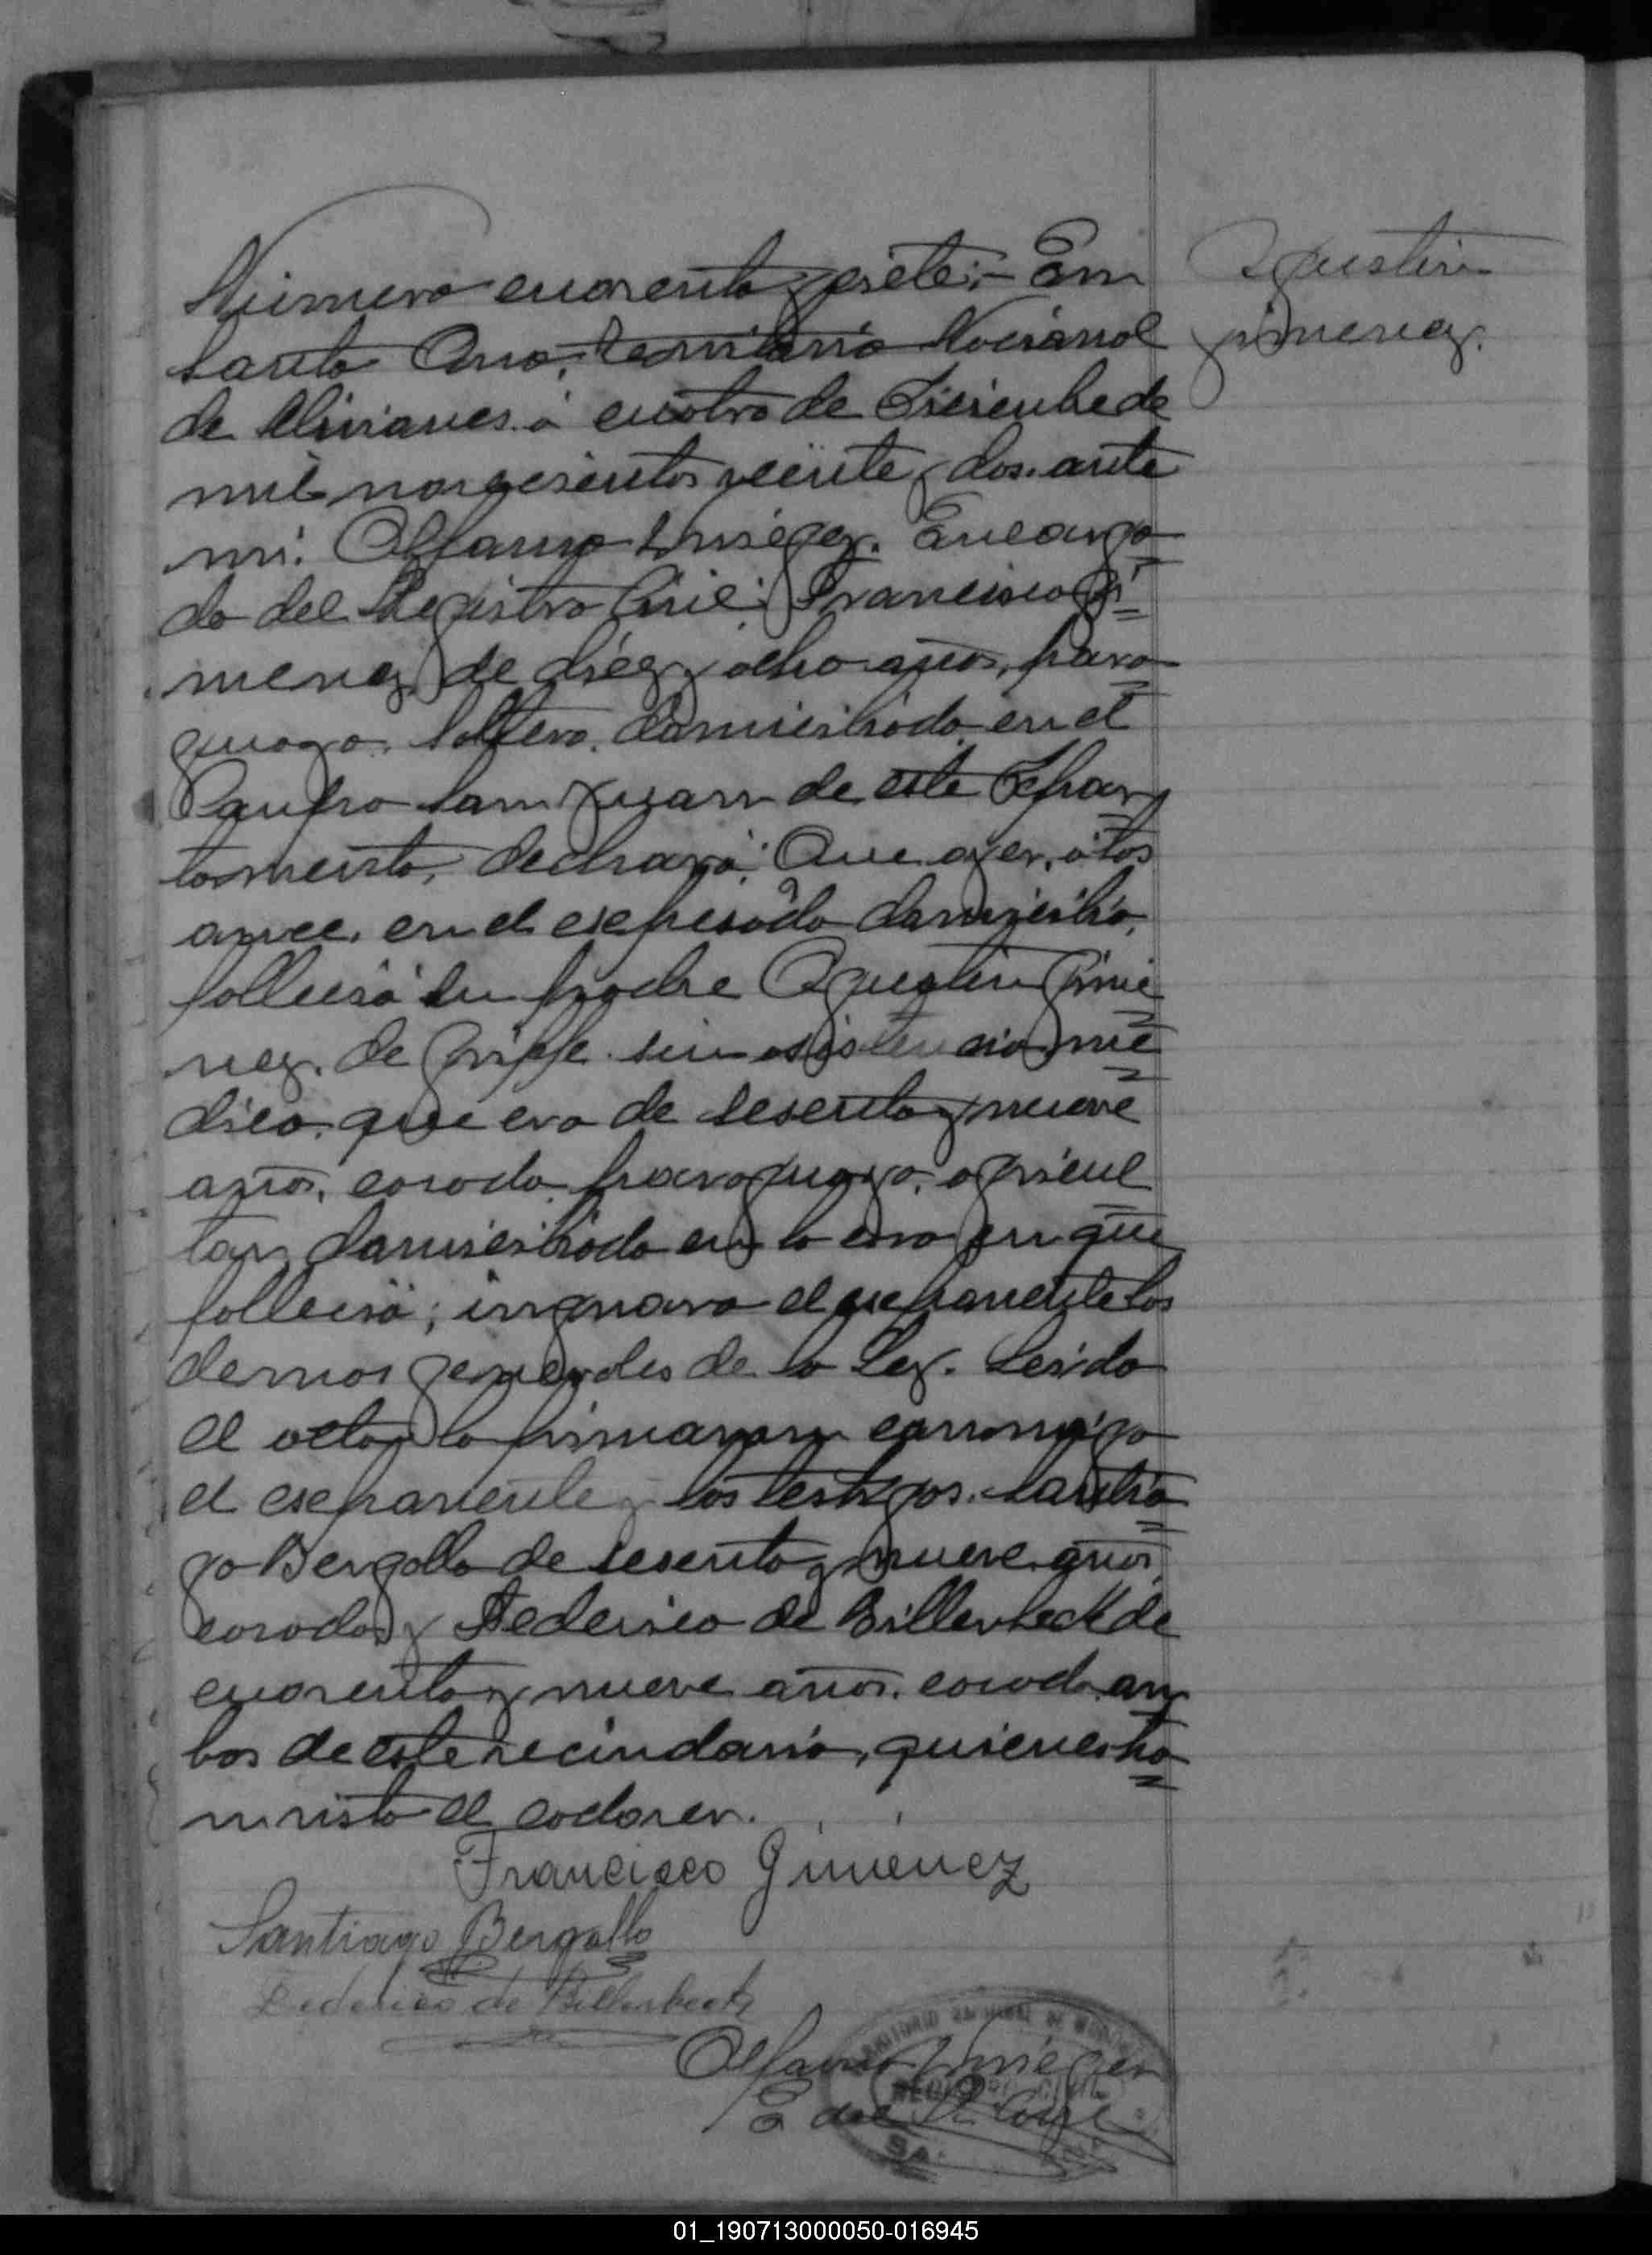 Número cuarenta y siete:- En
Santa Ana, territorio Nacional
de Misiones á cuatro de Diciembre de
mil novecientos veinte y dos. ante
mi. Encarga=
do del Registro Civil; Francisco Gi=
menez, de diez y ocho años, para=
guayo, soltero, domiciliado en el
Campo San Juan de este Depar
tamento, declaró: Que ayer, á las
once, en el expresado domicilio,
falleció su padre Agustin Gime=
nez, de Grippe sin asistencia mé=
dica, que era de sesenta y nueve
años, casado, paraguayo, agricul=
tor, domiciliado en la casa en que
falleció; ignorara el exponente los
demas generales de la Ley. Leida
el acta, la firmaron conmigo
el exponente y los testigos. Santia=
go Bergallo de sesenta y nueve años,
casado, y Federico de Billerbeck de
cuarenta y nueve años, casado, am
bos de este vecindario, quienes ha=
n visto el cadaver.
Francisco Giménez
Santiago Bergallo
Federico de Billerbeck
E. del R. Civil
Agustin
Jimenez.
REGISTRO CIVIL
01_190713000050-016945